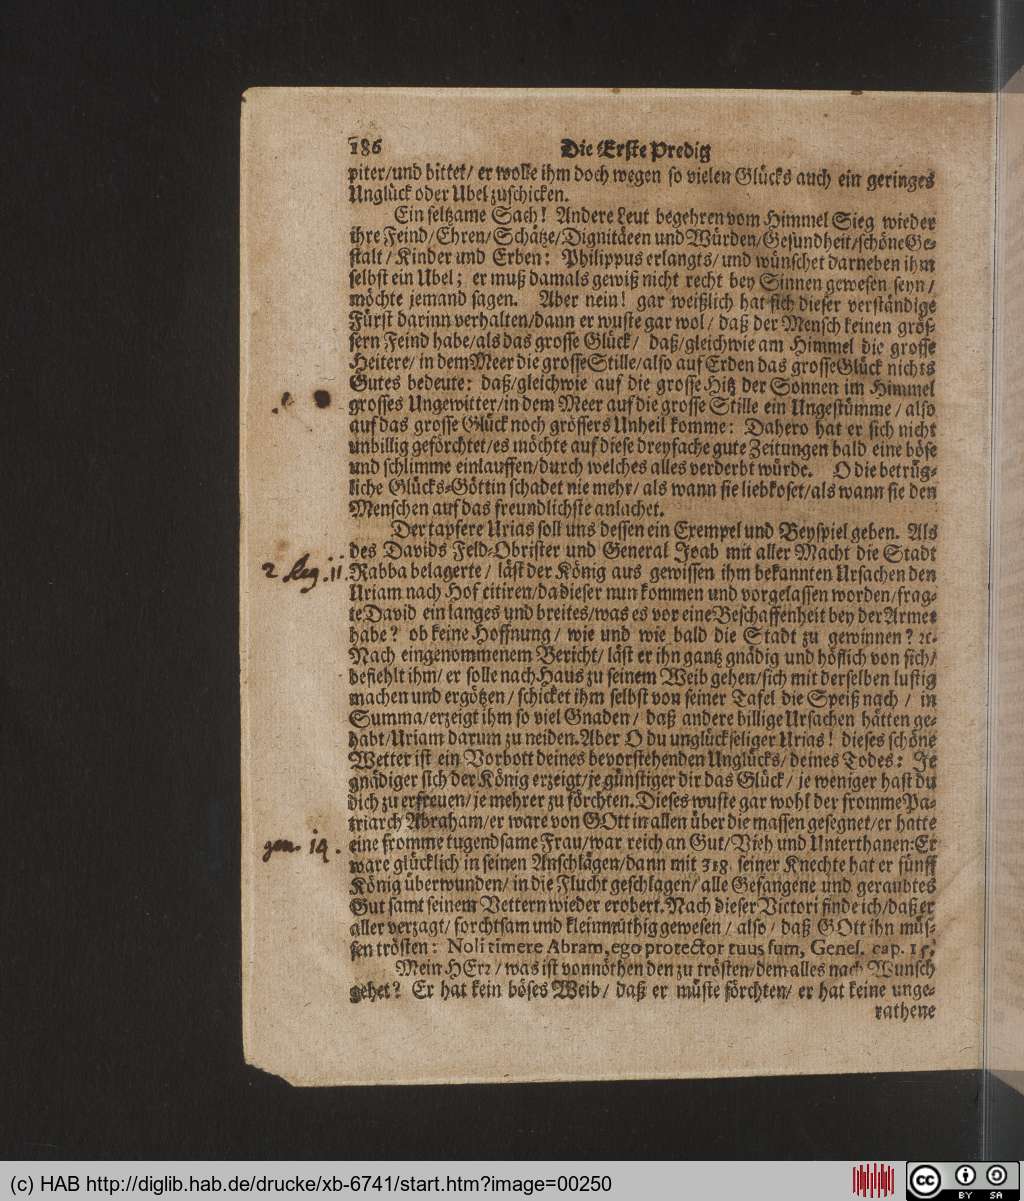 186
Die Erste Predig
piter/und bittet/ er wolle ihm doch wegen so vielen Glücks auch ein geringes
Unglück oder Ubel zuschicken.
Ein seltzame Sach! Andere Leut begehren vom Himmel Sieg wieder
ihre Feind/Ehren/Schätze/Dignitäeen und Würden/Gesundheit/schöne Ge-
stalt/Kinder und Erben: Philippus erlangts/und wünschet darneben ihm
selbst ein Ubel; er muß damals gewiß nicht recht bey Sinnen gewesen seyn/
möchte jemand sagen. Aber nein! gar weißlich hat sich dieser verständige
Fürst darinn verhalten/dann er wuste gar wol/ daß der Mensch keinen grös-
sern Feind habe/als das grosse Glück/ daß/gleichwie am Himmel die grosse
Heitere/ in dem Meer die grosse Stille/also auf Erden das grosse Glück nichts
Gutes bedeute: daß/gleichwie auf die grosse Hitz der Sonnen im Himmel
grosses Ungewitter/in dem Meer auf die grosse Stille ein Ungestümme/ also
auf das grosse Glück noch grössers Unheil komme: Dahero hat er sich nicht
unbillig geförchtet/es möchte auf diese dreyfache gute Zeitungen bald eine böse
und schlimme einlauffen/durch welches alles verderbt würde. O die betrüg-
liche Glücks-Göttin schadet nie mehr/ als wann sie liebkoset/als wann sie den
Menschen auf das freundlichste anlachet.
Der tapfere Urias soll uns dessen ein Exempel und Beyspiel geben. Als
des Davids Feld-Obrister und General Joab mit aller Macht die Stadt
2 Reg. 11. Rabba belagerte/ läst der König aus gewissen ihm bekannten Ursachen den
Uriam nach Hof citiren/da dieser nun kommen und vorgelassen worden/frag-
te David ein langes und breites/was es vor eine Beschaffenheit bey der Armee
habe? ob keine Hoffnung/ wie und wie bald die Stadt zu gewinnen? ꝛc.
Nach eingenommenem Bericht/ läst er ihn gantz gnädig und höflich von sich/
befiehlt ihm/ er solle nach Haus zu seinem Weib gehen/sich mit derselben lustig
machen und ergötzen/ schicket ihm selbst von seiner Tafel die Speiß nach/ in
Summa/erzeigt ihm so viel Gnaden/ daß andere billige Ursachen hätten ge-
habt/Uriam darum zu neiden. Aber O du unglückseliger Urias! dieses schöne
Wetter ist ein Vorbott deines bevorstehenden Unglücks/deines Todes: Je
gnädiger sich der König erzeigt/je günstiger dir das Glück/ je weniger hast du
dich zu erfreuen/je mehrer zu förchten. Dieses wuste gar wohl der fromme Pa-
triarch Abraham/er ware von GOtt in allen über die massen gesegnet/er hatte
gen. 14. eine fromme tugendsame Frau/war reich an Gut/Vieh und Unterthanen: Er
ware glücklich in seinen Anschlägen/dann mit 318. seiner Knechte hat er fünff
König überwunden/ in die Flucht geschlagen/ alle Gefangene und geraubtes
Gut samt seinem Vettern wieder erobert. Nach dieser Victori finde ich/daß er
aller verzagt/ forchtsam und kleinmüthig gewesen/ also/ daß GOtt ihn müs-
sen trösten: Noli timere Abram, ego protector tuus sum, Genes. cap. 15.
Mein HErr/ was ist vonnöthen den zu trösten/dem alles nach Wunsch
gehet? Er hat kein böses Weib/ daß er müste förchten/ er hat keine unge-
rathene
(c) HAB http://diglib.hab.de/drucke/xb-6741/start.htm?image=00250
cc BY SA